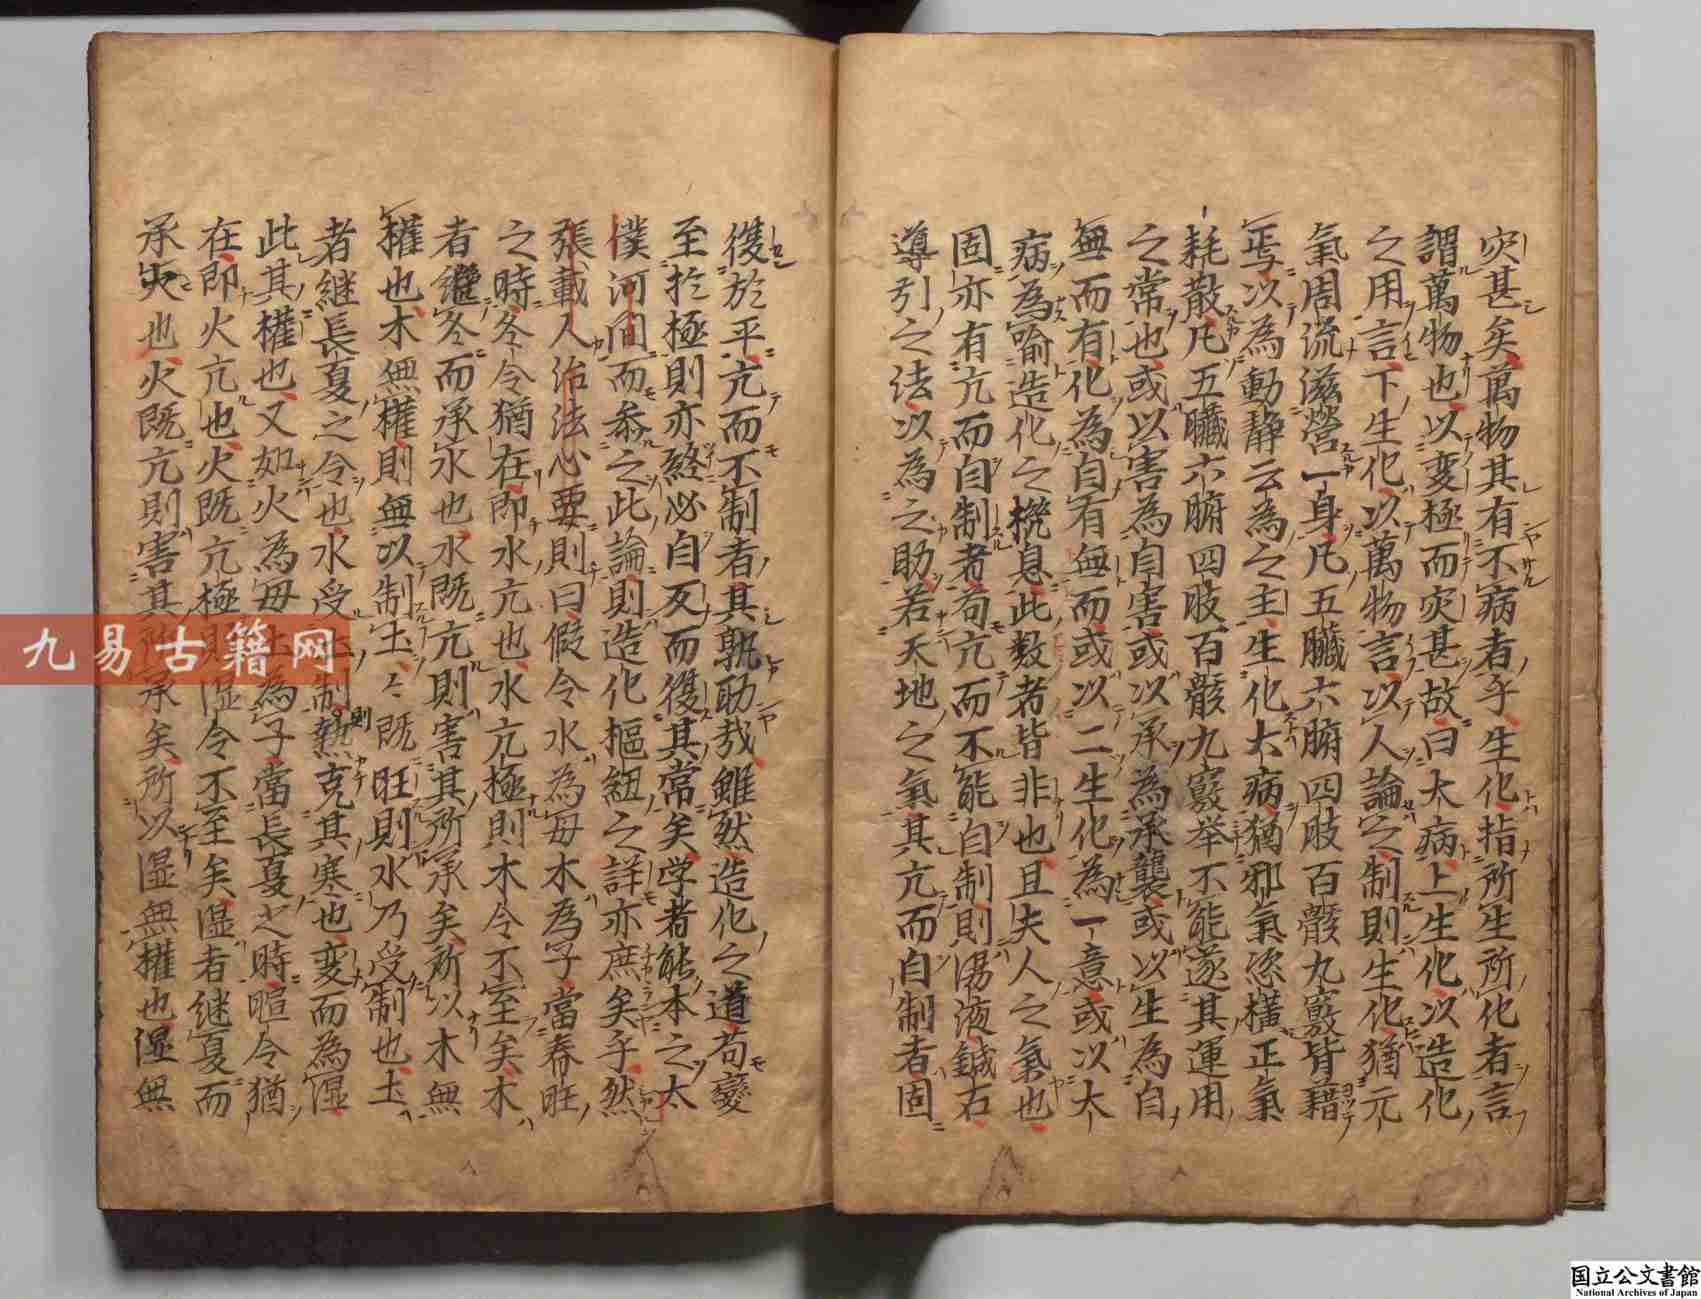 灾甚矣萬物其有不病者乎生化指所生所化者言
謂萬物也以変極而灾甚故曰大病上生化以造化
之用言下生化以萬物言以人論之制則生化猶元
氣周流滋營一身凡五臓六腑四肢百骸九竅皆藉
焉以為動静云為之主生化大病猶邪氣恣横正氣
耗散凡五臓六腑四肢百骸九竅举不能遂其運用
之常也或以害為自害或以承為承襲或以生為自
無而有化為自有無而或以二生化為一意或以大
病為喻造化之機息此数者皆非也且夫人之氣也
固亦有亢而自制者苟亢而不能自制則湯液鍼石
導引之法以為之助若天地之氣其亢而自制者固
復於平亢而不制者其孰助哉雖然造化之道苟變
至於極則亦終必自反而復其常矣学者能本之太
僕河间而参之此論則造化樞紐之詳亦庶矣乎然
張載人治法心要則曰假令水為母木為子當春旺
之時冬令猶在即水亢也水亢極則木令不至矣木
者継冬而承水也水既亢則害其所承矣所以木無
權也木無權則無以制土土既旺則水乃受制也土
者継長夏之令也水受土制熱則克其寒也変而為湿
此其權也又如火為母土為子當長夏之時暄令猶
在即火亢也火既亢極則湿令不至矣湿者継夏而
承火也火既亢則害其所承矣所以湿無權也湿無
九易古籍网
国立公文書館
National Archives of Japan